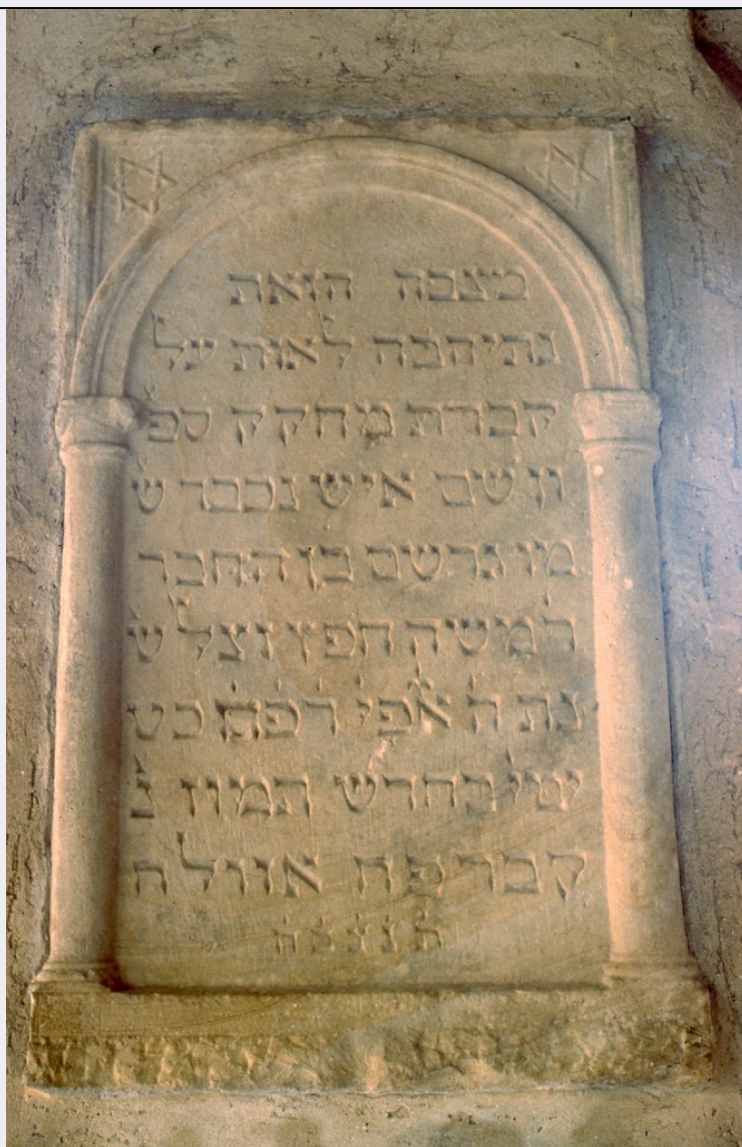 מצבה הזאת
נתיהבה לאות על
קברת מחקק ספ
ון שם איש נכבד ש
מו גרשם בן החבר
ר משה חפץ וצל ש
נת ה אפי רפת כש
יטי בחדש תמוז נ
קבר פה אוולח
תנצבה